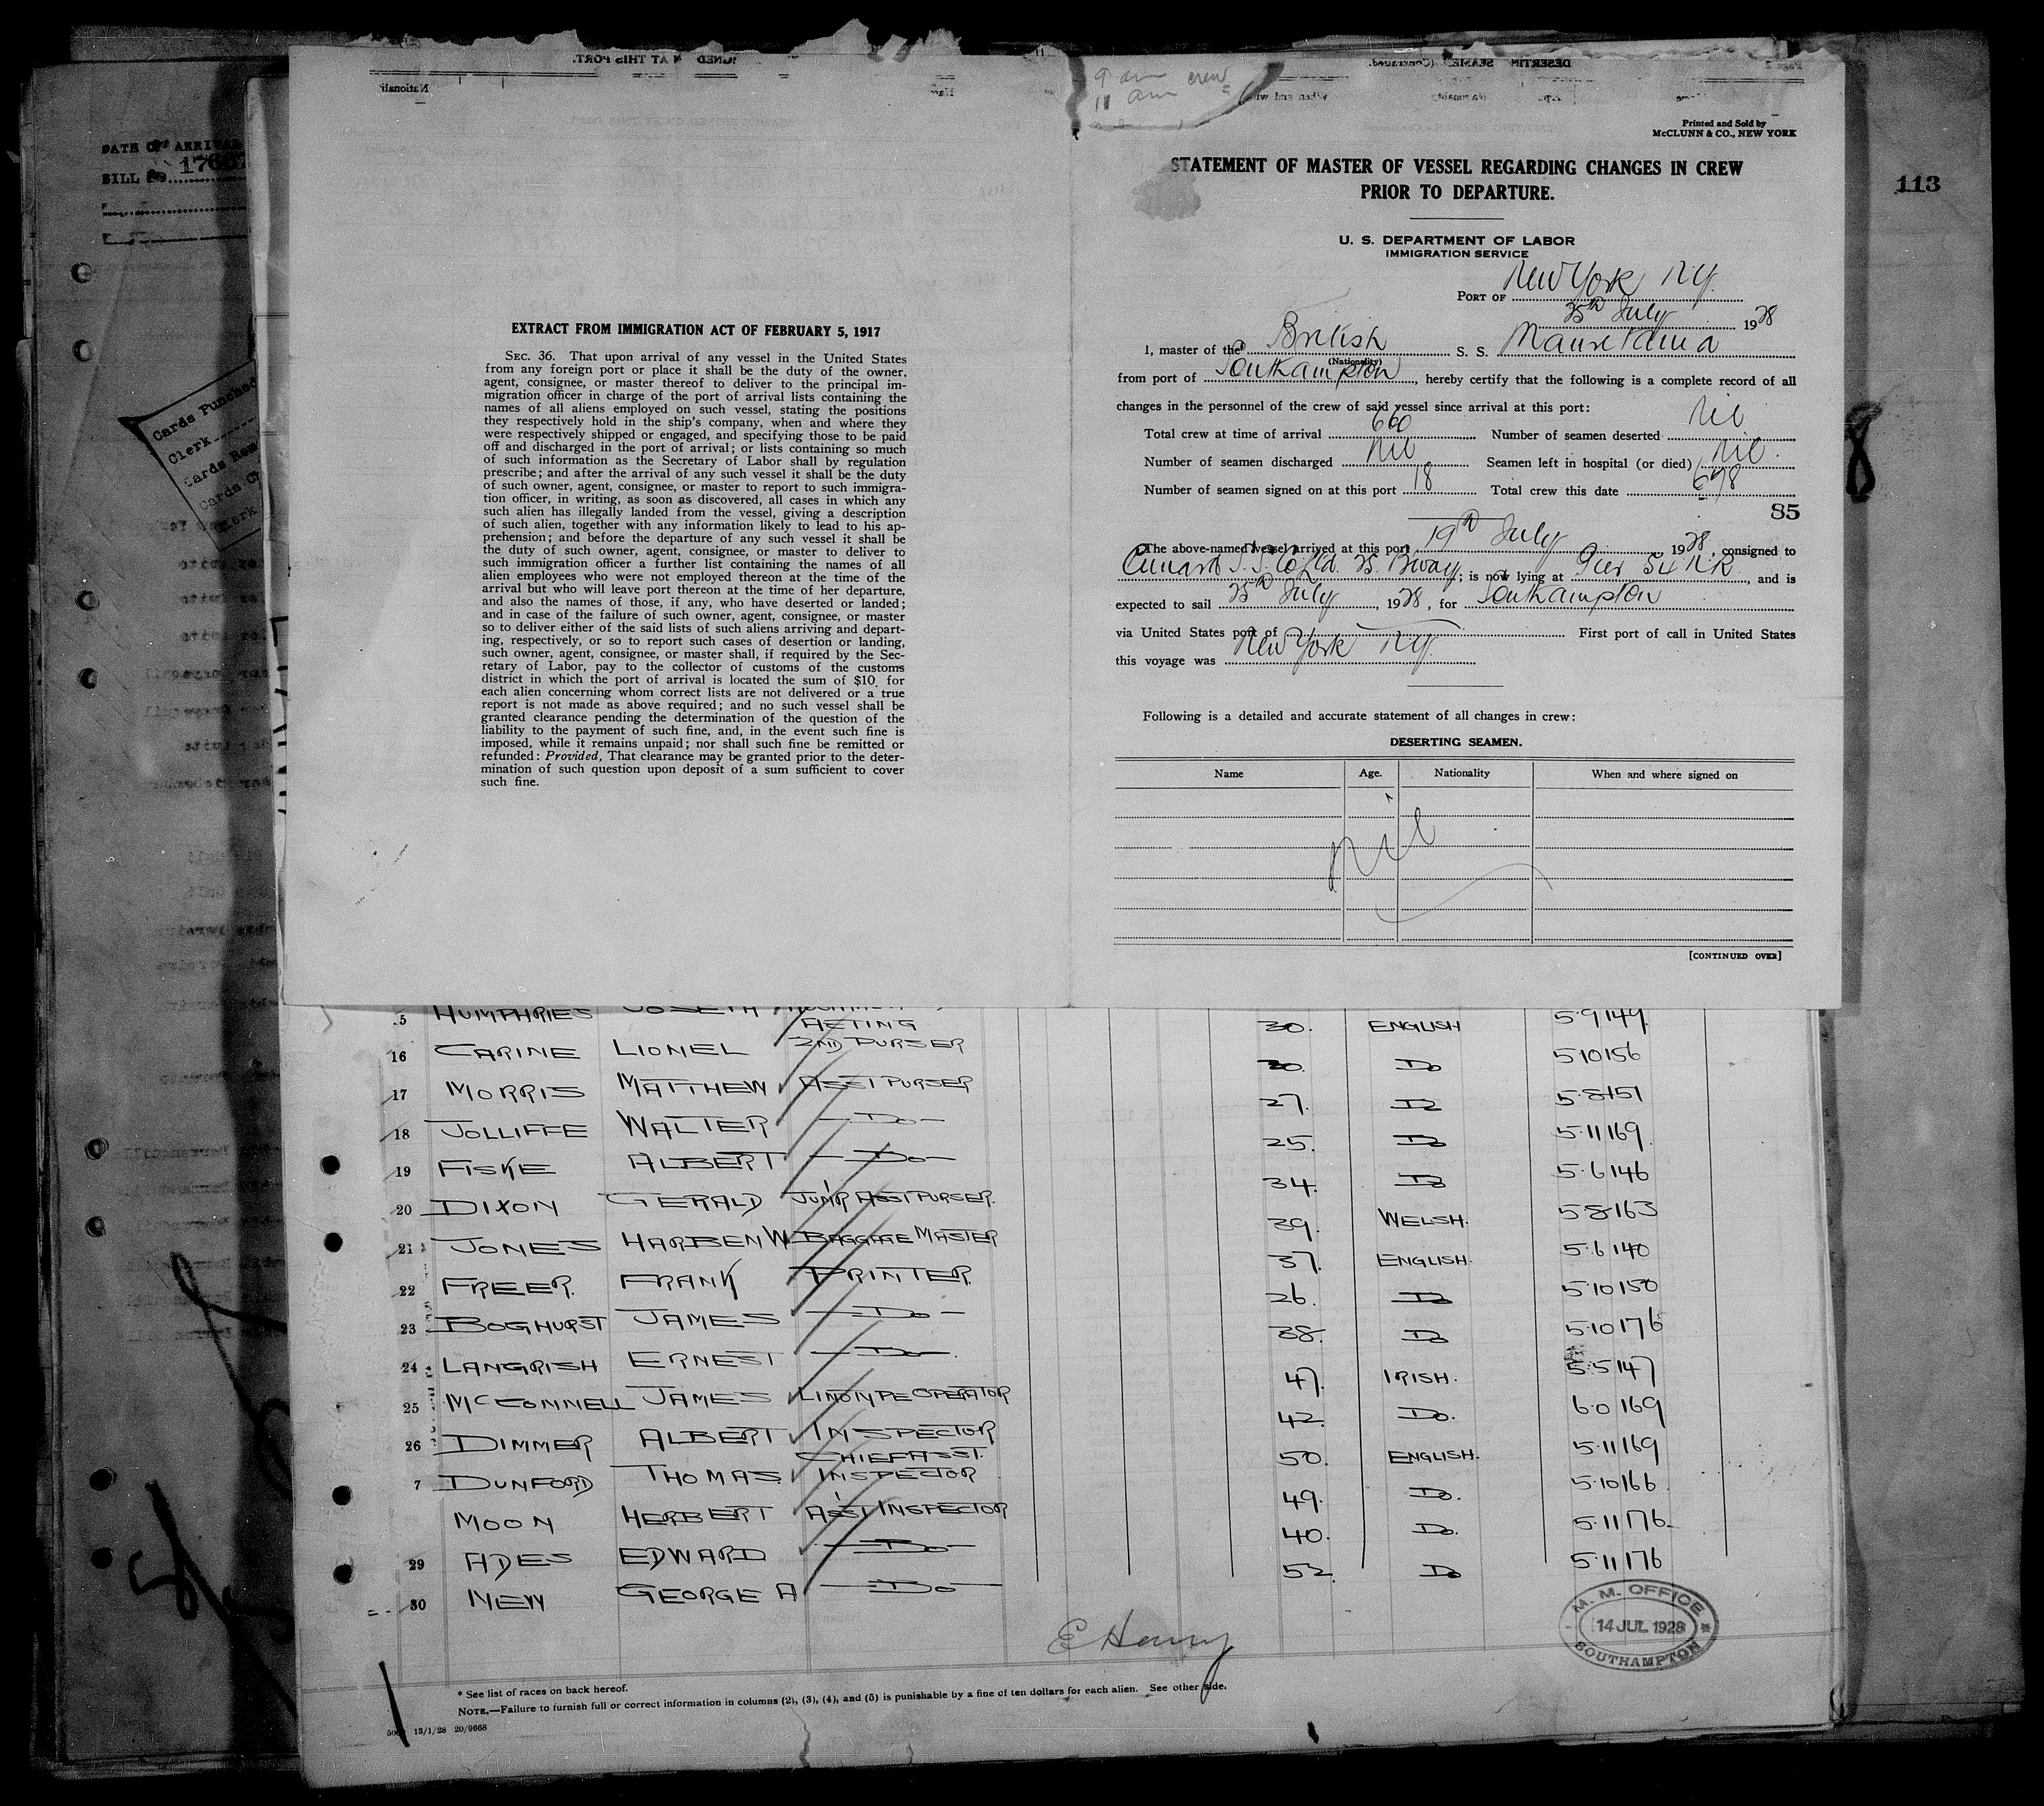 DATE OF ARRIVAL
BILL
113
9 am crew
11 am
Printed and Sold by
McCLUNN & CO., NEW YORK
STATEMENT OF MASTER OF VESSEL REGARDING CHANGES IN CREW
PRIOR TO DEPARTURE.
U. S. DEPARTMENT OF LABOR
IMMIGRATION SERVICE
PORT OF New York NY.
25th July 1928
I, master of the British S. S. Mauretania
(Nationality)
from port of Southampton, hereby certify that the following is a complete record of all
changes in the personnel of the crew of said vessel since arrival at this port:
Total crew at time of arrival 660 Number of seamen deserted Nil
Number of seamen discharged Nil Seamen left in hospital (or died) Nil.
Number of seamen signed on at this port 18 Total crew this date 678
85
The above-named vessel arrived at this port 19th July 1928, consigned to
Cunard S.S. Co Ltd. 25 Bway; is now lying at Pier 54 N.R., and is
expected to sail 25th July, 1928, for Southampton
via United States port of First port of call in United States
this voyage was New York NY.
Following is a detailed and accurate statement of all changes in crew:
DESERTING SEAMEN.
Name Age. Nationality When and where signed on
nil
[CONTINUED OVER]
EXTRACT FROM IMMIGRATION ACT OF FEBRUARY 5, 1917
SEC. 36. That upon arrival of any vessel in the United States
from any foreign port or place it shall be the duty of the owner,
agent, consignee, or master thereof to deliver to the principal im-
migration officer in charge of the port of arrival lists containing the
names of all aliens employed on such vessel, stating the positions
they respectively hold in the ship's company, when and where they
were respectively shipped or engaged, and specifying those to be paid
off and discharged in the port of arrival; or lists containing so much
of such information as the Secretary of Labor shall by regulation
prescribe; and after the arrival of any such vessel it shall be the duty
of such owner, agent, consignee, or master to report to such immigra-
tion officer, in writing, as soon as discovered, all cases in which any
such alien has illegally landed from the vessel, giving a description
of such alien, together with any information likely to lead to his ap-
prehension; and before the departure of any such vessel it shall be
the duty of such owner, agent, consignee, or master to deliver to
such immigration officer a further list containing the names of all
alien employees who were not employed thereon at the time of the
arrival but who will leave port thereon at the time of her departure,
and also the names of those, if any, who have deserted or landed;
and in case of the failure of such owner, agent, consignee, or master
so to deliver either of the said lists of such aliens arriving and depart-
ing, respectively, or so to report such cases of desertion or landing,
such owner, agent, consignee, or master shall, if required by the Sec-
retary of Labor, pay to the collector of customs of the customs
district in which the port of arrival is located the sum of $10 for
each alien concerning whom correct lists are not delivered or a true
report is not made as above required; and no such vessel shall be
granted clearance pending the determination of the question of the
liability to the payment of such fine, and, in the event such fine is
imposed, while it remains unpaid; nor shall such fine be remitted or
refunded: Provided, That clearance may be granted prior to the deter-
mination of such question upon deposit of a sum sufficient to cover
such fine.
Cards Punched
Clerk
5 HUMPHRIES JOSEPH
ACTING 30. ENGLISH 5·9 149
16 CARINE LIONEL 2ND PURSER 30. Do 5·10 156
17 MORRIS MATTHEW ASST PURSER 27. Do 5·8 151
18 JOLLIFFE WALTER Do 25. Do 5·11 169
19 FISKE ALBERT Do 34. Do 5·6 146
20 DIXON GERALD JUN'R ASST PURSER. 39. WELSH. 5·8 163
21 JONES HARBEN W BAGGAGE MASTER 37. ENGLISH. 5·6 140
22 FREER. FRANK PRINTER 26. Do 5·10 150
23 BOGHURST JAMES Do 38. Do 5·10 176
24 LANGRISH ERNEST Do 47. IRISH. 5·5 147
25 McCONNELL JAMES LINOTYPE OPERATOR 42. Do. 6·0 169
26 DIMMER ALBERT INSPECTOR 50. ENGLISH. 5·11 169
CHIEF ASST.
7 DUNFORD THOMAS INSPECTOR 49. Do. 5·10 166
MOON HERBERT ASST INSPECTOR 40. Do. 5·11 176
29 ADES EDWARD Do 52. Do 5·11 176
30 NEW GEORGE A Do
M. M. OFFICE
14 JUL 1928
SOUTHAMPTON
* See list of races on back hereof.
NOTE.—Failure to furnish full or correct information in columns (2), (3), (4), and (5) is punishable by a fine of ten dollars for each alien. See other side.
13/1/28 20/9668